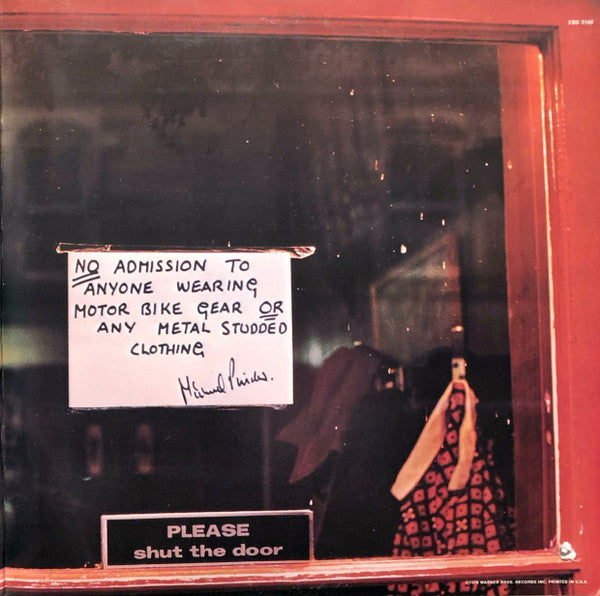 2BS 3140
NO ADMISSION TO
ANYONE WEARING
MOTOR BIKE GEAR OR
ANY METAL STUDDED
CLOTHING
PLEASE
shut the door
WARNER BROS. RECORDS INC. PRINTED IN U.S.A.